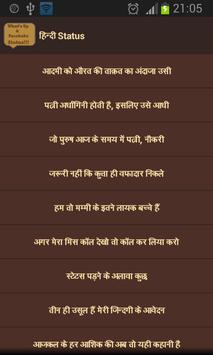 21:05
What's Up
&
Facebook
Status!!!
हिन्दी Status
आदमी को औरत की ताक़त का अंदाजा उसी
पत्नी अर्धांगिनी होती है, इसलिए उसे आधी
जो पुरुष आज के समय में पत्नी, नौकरी
जरूरी नहीं कि कुत्ता ही वफादार निकले
हम तो मम्मी के इतने लायक बच्चे हैं
अगर मेरा मिस कॉल देखो तो कॉल कर लिया करो
स्टेटस पड़ने के अलावा कुछ
तीन ही उसूल हैं मेरी जिन्दगी के आवेदन
आजकल के हर आशिक की अब तो यही कहानी है